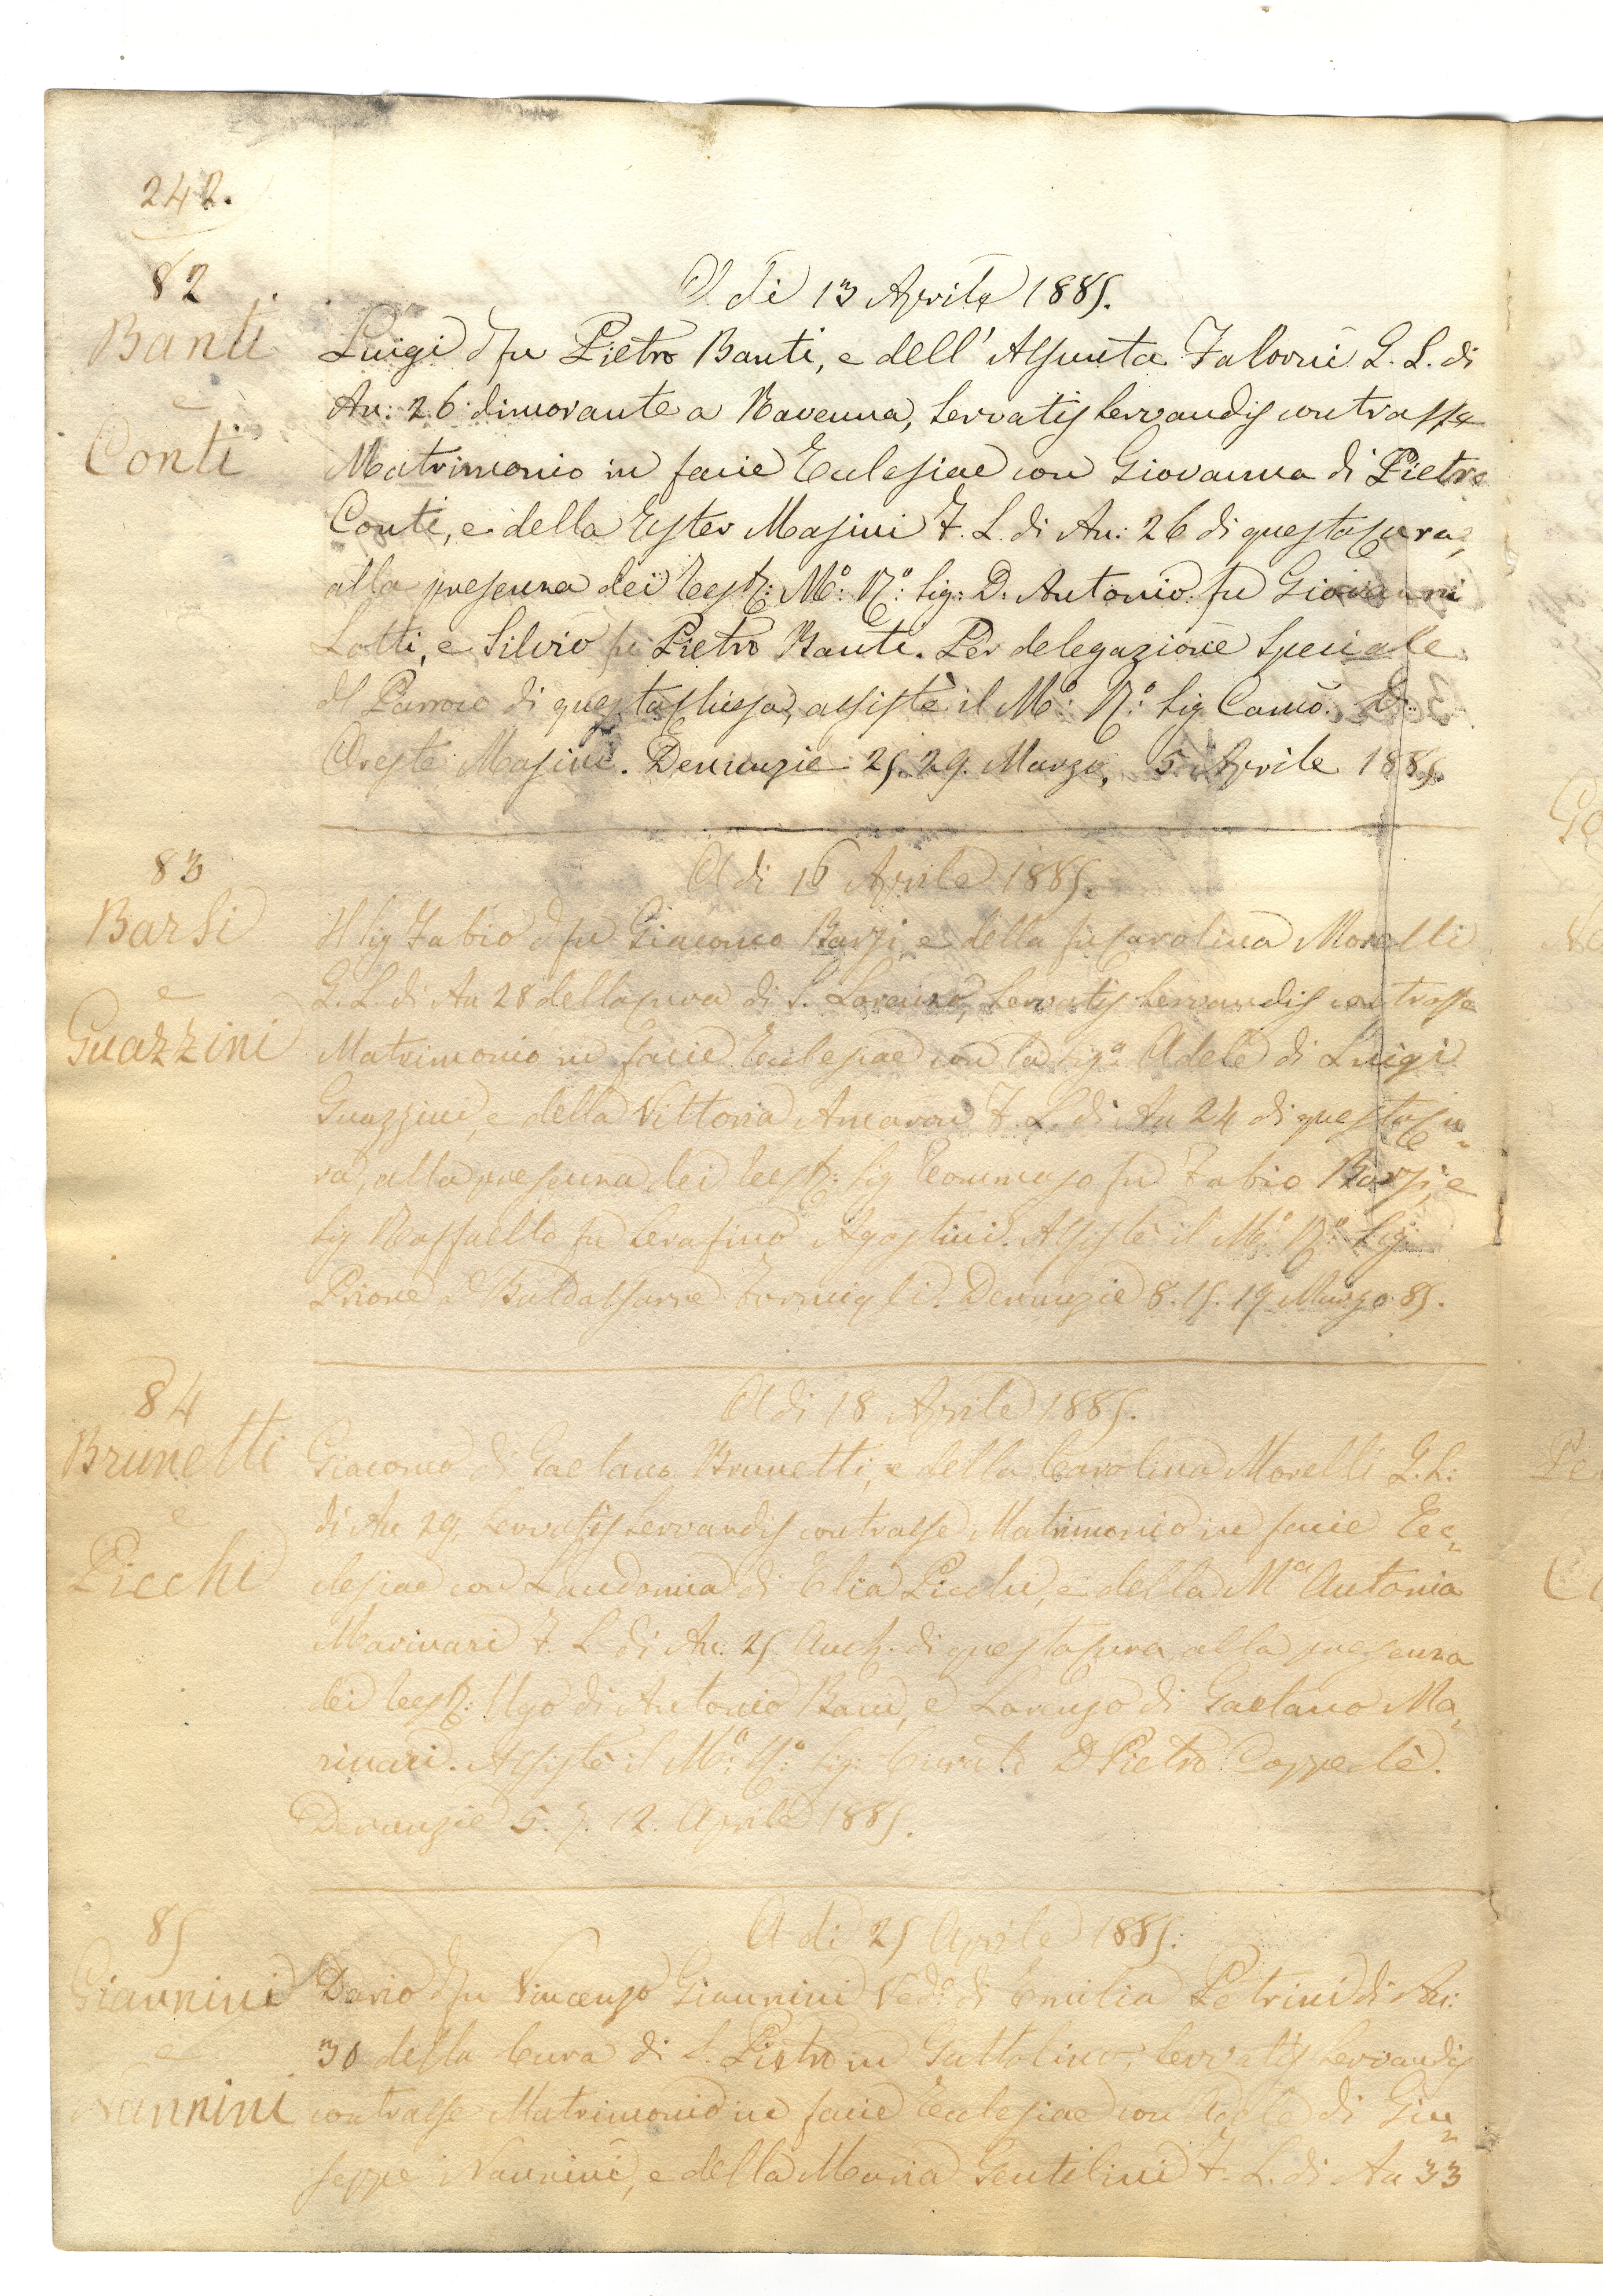 242.
82
Banti
e
Conti
A dì 13 Aprile 1885.
Luigi d fu Pietro Banti, e dell' Assunta Falorni G. L. di
An: 26 dimorante a Ravenna, Servatis Servandis contrasse
Matrimonio in facie Ecclesiae con Giovanna di Pietro
Conti, e della Ester Masini F. L. di An: 26 di questa Cura,
alla presenza dei Test: M: R: Sig: D. Antonio fu Giovanni
Lotti, e Silvio fu Pietro Banti. Per delegazione Speciale
del Parroco di questa Chiesa, assistè il M: R: Sig Canco: D.
Oreste Masini. Denunzie 25. 29. Marzo, 5 Aprile 1885.
83
Barsi
e
Guazzini
A di 16 Aprile 1885.
Il Sig Fabio d fu Giacomo Barsi, e della fu Carolina Morelli
G. L. di An 28 della Cura di S. Lorenzo, Servatis Servandis contrasse
Matrimonio in facie Ecclesiae con la Sig.a Adele di Luigi
Guazzini, e della Vittoria F. L. di An 24 di questa Cu=
ra, alla presenza dei Test: Sig Tommaso fu Fabio Barsi, e
Sig Raffaello fu Serafino Agostini. Assistè il M: R: Sig:
Priore Baldassarre Formigli. Denunzie 8. 15. 19 Marzo 85.
84
Brunetti
e
Picchi
A di 18 Aprile 1885.
Giacomo di Gaetano Brunetti, e della Carolina Morelli G. L:
di An 29, Servatis Servandis contrasse Matrimonio in facie Ec=
clesiae con Laudomia di Elia Picchi, e della M.a Antonia
Marinari F. L. di An: 25 di questa Cura, alla presenza
dei Test: Ugo di Antonio e Lorenzo di Gaetano Ma=
rinari. Assistè il M: R: Sig: Curato D Pietro
Denunzie 5. 7. 12. Aprile 1885.
85
Giannini
e
Nannini
A di 25 Aprile 1885.
Dario d fu Vincenzo Giannini Ved: di Emilia Petrini di An:
30 della Cura di S. Pietro in Gattolino, Servatis Servandis
contrasse Matrimonio in facie Ecclesiae con Adele di Giu=
seppe Nannini, e della Maria Gentilini F. L. di An 33